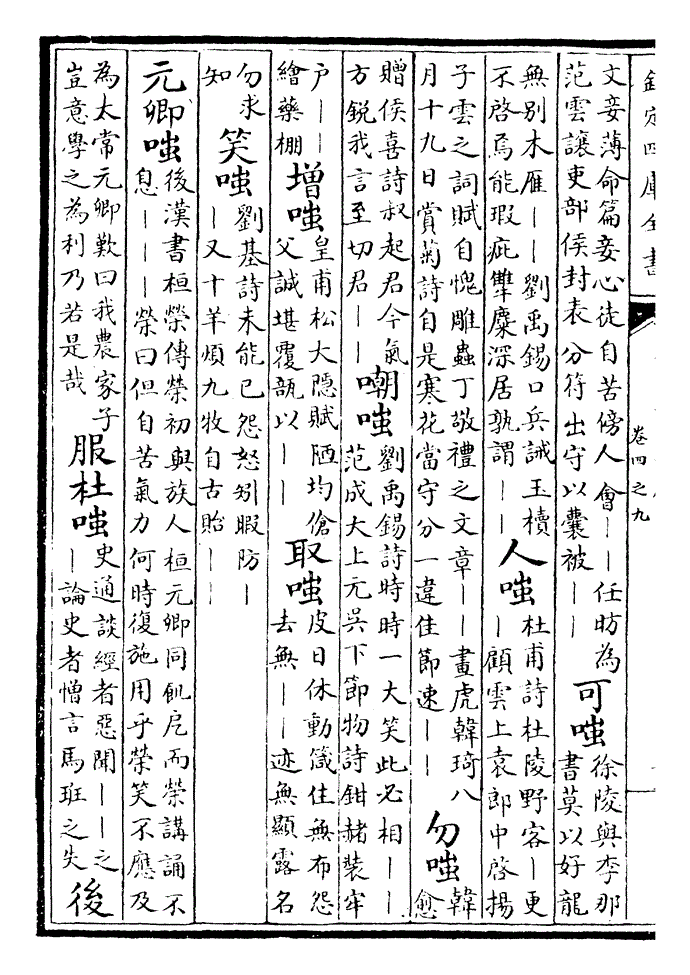 欽定四庫全書
卷四之九
文妾薄命篇妾心徒自苦傍人會——任昉為
范雲讓吏部侯封表分符出守以囊被——
可嗤
徐陵與李那
書莫以好龍
無別木雁——劉禹錫口兵誡玉櫝
不啓焉能瑕疵犨麋深居孰謂——
人嗤
杜甫詩杜陵野客—更
—顧雲上袁郎中啓揚
子雲之詞賦自愧雕蟲丁敬禮之文章——畫虎韓琦八
月十九日賞菊詩自是寒花當守分一違佳節速——
勿嗤
韓
愈
贈侯喜詩叔起君今氣
方銳我言至切君——
嘲嗤
劉禹錫詩時時一大笑此必相——
范成大上元吳下節物詩鉗赭裝牢
户——
繪藥棚
增嗤
皇甫松大隱賦陋均傖
父誠堪覆瓿以——
取嗤
皮日休動箴住無布怨
去無——迹無顯露名
勿求
知
笑嗤
劉基詩未能已怨怒矧暇防—
—又十羊煩九牧自古貽——
元卿嗤
後漢書桓榮傳榮初與族人桓元卿同飢戹而榮講誦不
息———榮曰但自苦氣力何時復施用乎榮笑不應及
為太常元卿歎曰我農家子
豈意學之為利乃若是哉
服杜嗤
史通談經者惡聞——之
—論史者憎言馬班之失
後